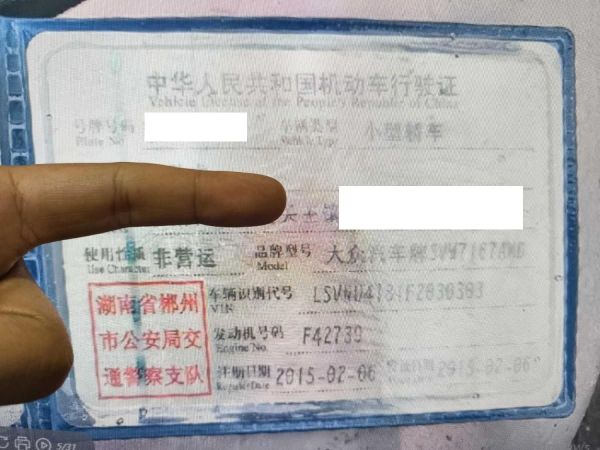 中华人民共和国机动车行驶证
Vehicle License of the People's Republic of China
号牌号码 车辆类型 小型轿车
Plate No. Vehicle Type
使用性质 非营运 品牌型号 大众汽车牌
Use Character Model
湖南省郴州
市公安局交
通警察支队
车辆识别代号
VIN
发动机号码 F42739
Engine No.
注册日期 2015-02-06 发证日期 2015-02-06
Register Date
5/31